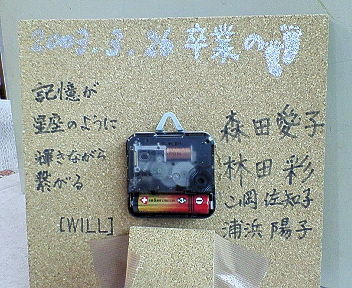 2003.3.26 卒業の
記憶が
星座のように
輝きながら
繋がる
[WILL]
森田愛子
林田 彩
山岡 佐知子
浦浜 陽子